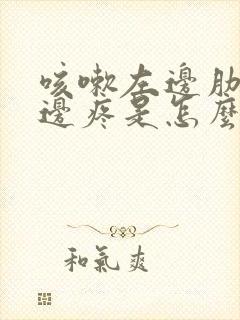 咳嗽左邊肋
邊疼是怎麼
和氣爽